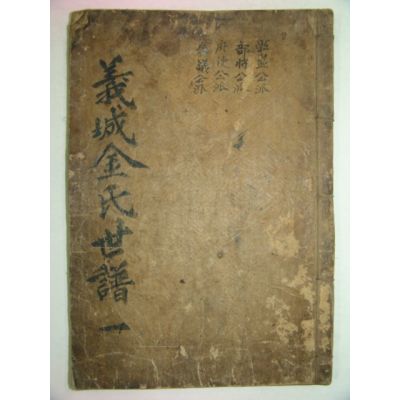 縣監公派
部將公派
府使公派
議公派
義城金氏世譜 一